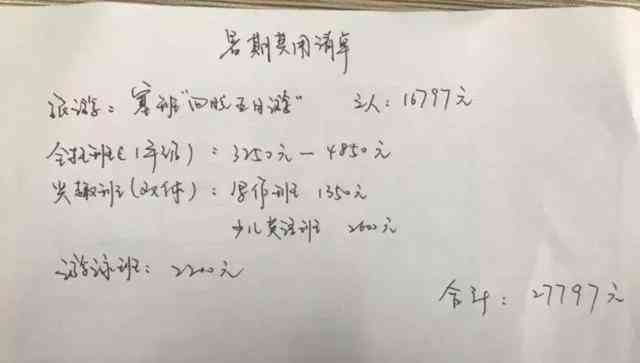 暑期费用清单
旅游：塞班“四晚五日游” 三人：16797元
全托班（1年级）：3250元—4850元
兴趣班（文体）：写作班 1350元
少儿英语班 2600元
游泳班：2200元
合计：27797元